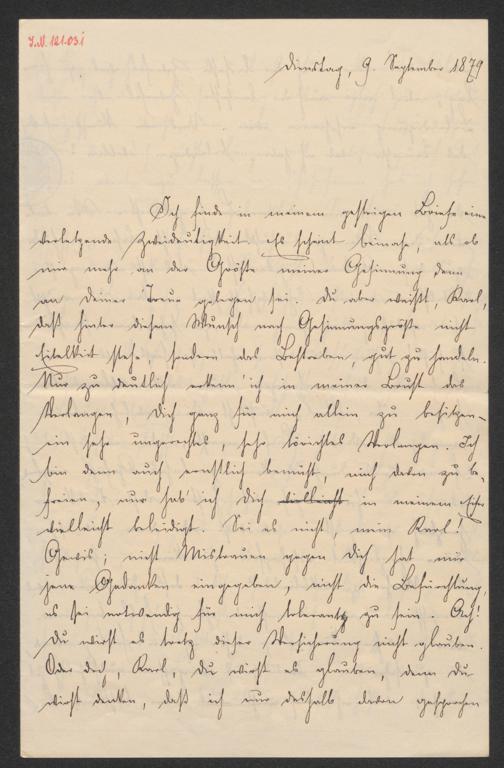 I.N. 121.031
Dienstag, 9. September 1879
Ich finde in meinem gestrigen Briefe eine
verletzende Zweideutigkeit. Es scheint beinahe, als ob
mir mehr an der Größe meiner Gesinnung denn
an Deiner Treue gelegen sei. Du aber weißt, Karl,
daß hinter diesem Wunsch nach Gesinnungsgröße nicht
Eitelkeit stehe, sondern das Bestreben, gut zu handeln.
Nur zu deutlich erkenn' ich in meiner Brust das
Verlangen, Dich ganz für mich allein zu besitzen –
ein sehr ungerechtes, sehr törichtes Verlangen. Ich
bin denn auch ernstlich bemüht, mich davon zu be-
freien, nur hab' ich Dich vielleicht in meinem Eifer
vielleicht beleidigt. Sei es nicht, mein Karl!
Gewis; nicht Mistrauen gegen Dich hat mir
jene Gedanken eingegeben, nicht die Befürchtung,
es sei notwendig für mich tolerant zu sein. Ach!
Du wirst es trotz dieser Versicherung nicht glauben.
Oder doch, Karl, Du wirst es glauben, denn Du
wirst denken, daß ich nur deshalb davon gesprochen